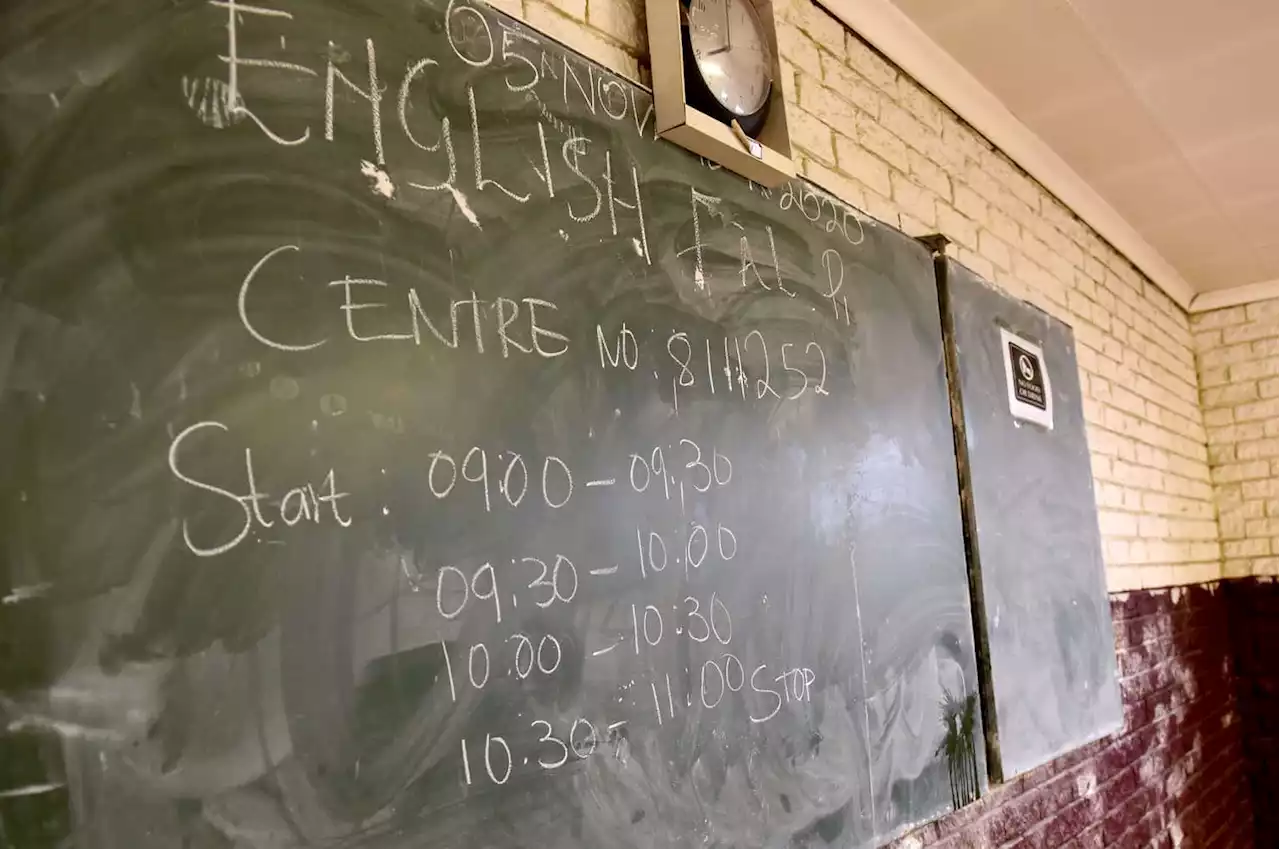 05 NOV 2020
ENGLISH FAL P1
CENTRE NO: 8111252
Start: 09:00 - 09:30
09:30 - 10:00
10:00 - 10:30
10:30 - 11:00 STOP
NO FOOD
OR DRINK